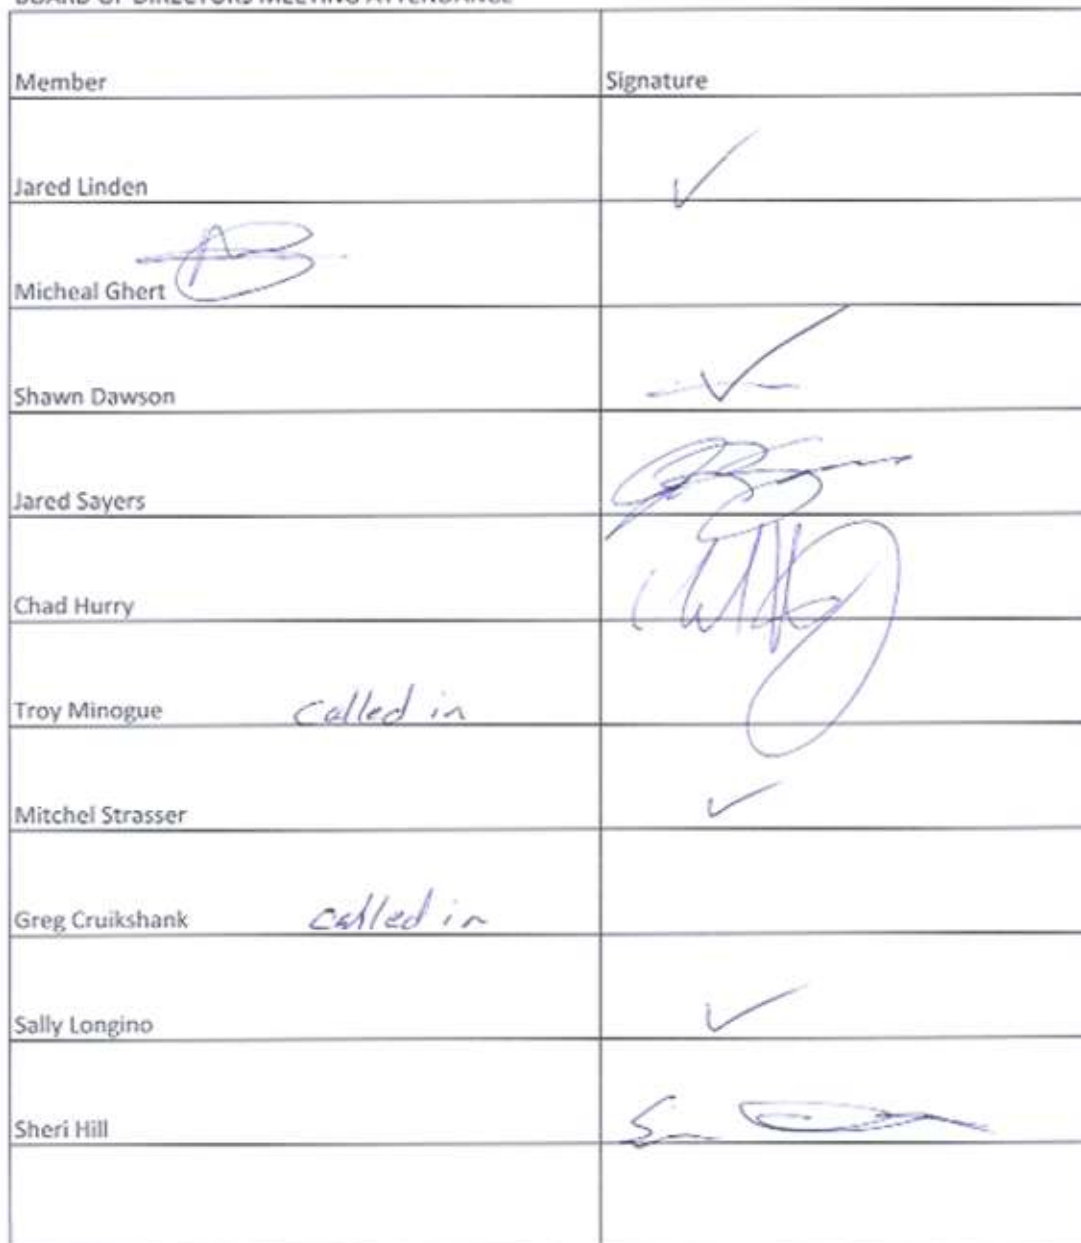 BOARD OF DIRECTORS MEETING ATTENDANCE
Member Signature
Jared Linden
Micheal Ghert
Shawn Dawson
Jared Sayers
Chad Hurry
Troy Minogue called in
Mitchel Strasser
Greg Cruikshank called in
Sally Longino
Sheri Hill